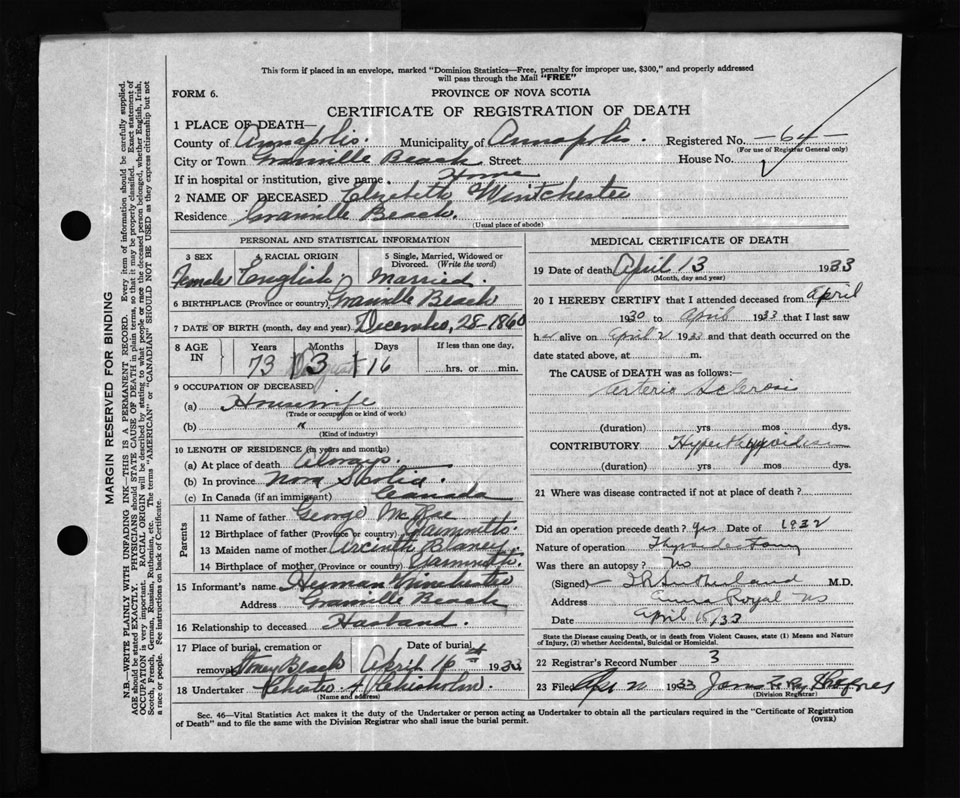 This form if placed in an envelope, marked "Dominion Statistics—Free, penalty for improper use, $300," and properly addressed
will pass through the Mail "FREE"
FORM 6.
PROVINCE OF NOVA SCOTIA
CERTIFICATE OF REGISTRATION OF DEATH
1 PLACE OF DEATH—
County of Annapolis. Municipality of Annapolis. Registered No. —64—
(For use of Registrar General only)
City or Town Granville Beach Street House No.
If in hospital or institution, give name Home
2 NAME OF DECEASED Elizabeth Wintchester
Residence Granville Beach.
(Usual place of abode)
PERSONAL AND STATISTICAL INFORMATION
3 SEX 4 RACIAL ORIGIN 5 Single, Married, Widowed or Divorced. (Write the word)
Female English Married.
6 BIRTHPLACE (Province or country) Granville Beach
7 DATE OF BIRTH (month, day and year) December, 28-1860
8 AGE IN Years Months Days If less than one day,
73 3 16 hrs. or min.
9 OCCUPATION OF DECEASED
(a) Housewife
(Trade or occupation or kind of work)
(b) "
(Kind of industry)
10 LENGTH OF RESIDENCE (in years and months)
(a) At place of death Always.
(b) In province Nova Scotia
(c) In Canada (if an immigrant) Canada
Parents
11 Name of father George McRae
12 Birthplace of father (Province or country)
13 Maiden name of mother Blaney
14 Birthplace of mother (Province or country)
15 Informant's name Heyman Winchester
Address Granville Beach
16 Relationship to deceased Husband.
17 Place of burial, cremation or Date of burial
removal Stoney Beach April 16th 1933
18 Undertaker Chisholm.
(Name and address)
MEDICAL CERTIFICATE OF DEATH
19 Date of death April 13 1933
(Month, day and year)
20 I HEREBY CERTIFY that I attended deceased from April
1930 to April 1933 that I last saw
her alive on April 2 1933 and that death occurred on the
date stated above, at m.
The CAUSE of DEATH was as follows:—
Arterio Sclerosis
(duration) yrs mos dys.
CONTRIBUTORY
(duration) yrs mos dys.
21 Where was disease contracted if not at place of death?
Did an operation precede death? yes Date of 1932
Nature of operation Thyroidectomy
Was there an autopsy? No
(Signed) Sutherland M.D.
Address Anna Royal NS
Date April 15/33
State the Disease causing Death, or in death from Violent Causes, state (1) Means and Nature
of Injury, (2) whether Accidental, Suicidal or Homicidal.
22 Registrar's Record Number 3
23 Filed 1933
(Division Registrar)
Sec. 46—Vital Statistics Act makes it the duty of the Undertaker or person acting as Undertaker to obtain all the particulars required in the "Certificate of Registration
of Death" and to file the same with the Division Registrar who shall issue the burial permit.
(OVER)
MARGIN RESERVED FOR BINDING
N.B.—WRITE PLAINLY WITH UNFADING INK—THIS IS A PERMANENT RECORD. Every item of information should be carefully supplied.
AGE should be stated EXACTLY. PHYSICIANS should STATE CAUSE OF DEATH in plain terms, so that it may be properly classified. Exact statement of
OCCUPATION is very important. RACIAL ORIGIN will be described by stating to what people or race the deceased person belonged, whether English, Irish,
Scotch, French, German, Russian, Ruthenian, etc. The terms "AMERICAN" or "CANADIAN" SHOULD NOT BE USED as they express citizenship but not
a race or people. See instructions on back of Certificate.